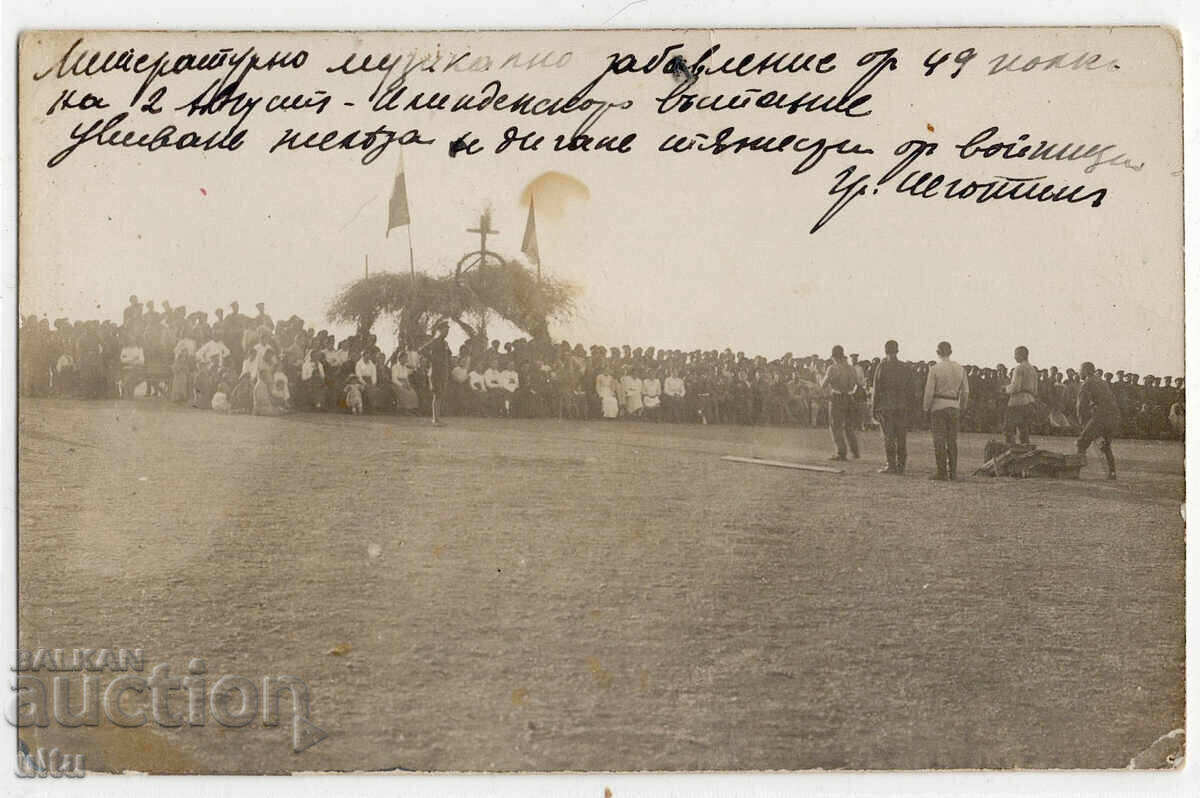 Литературно музикално забавление ор 49 полкъ
на 2 Августъ - Илинденско въстание
увиване желѣза и дигане тѣжести от войници
гр. Неготинъ
BALKAN
auction
ultu